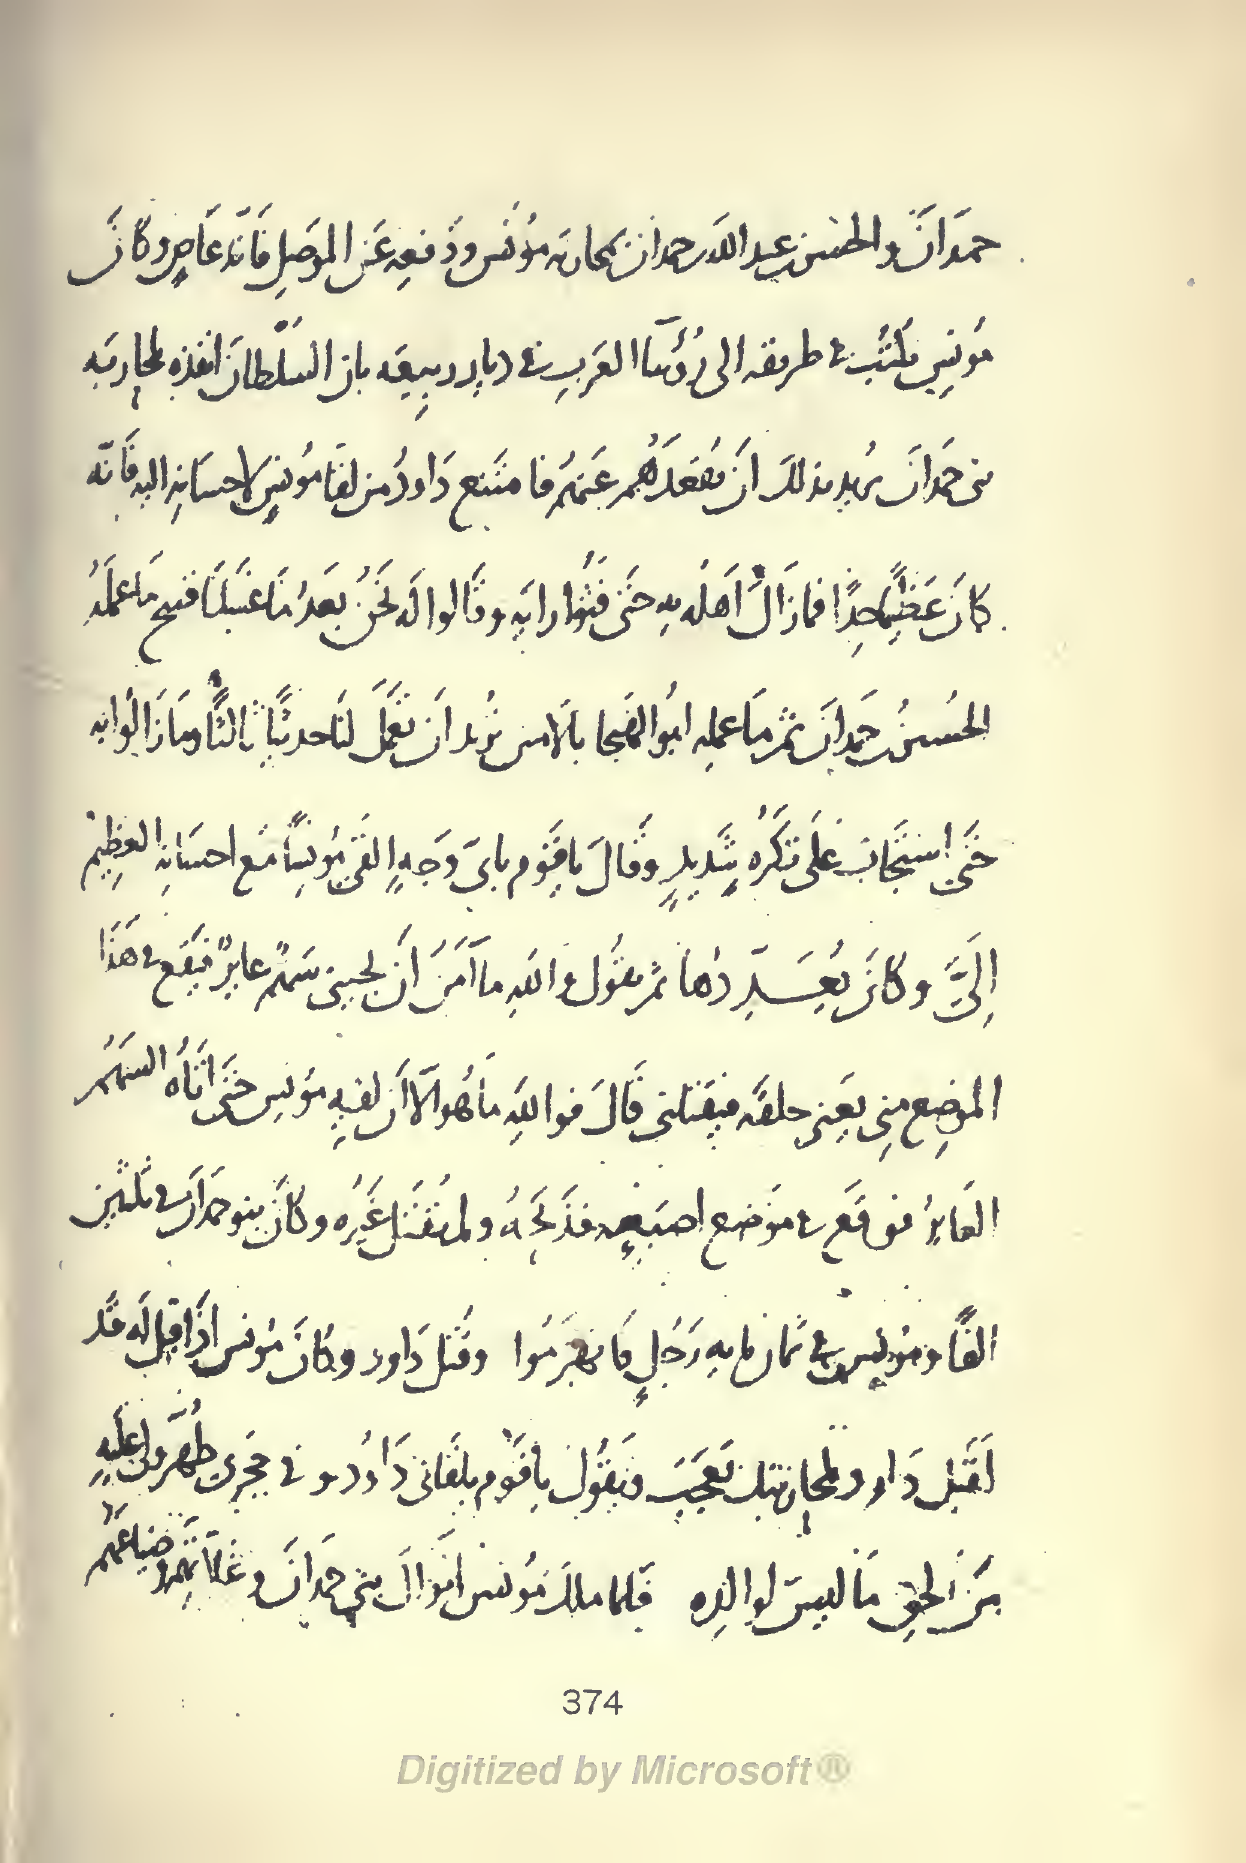 حمدان والحسن بن عبد الله بن حمدان بمحاربه مؤنس ودفعه عن الموصل فانه عاص وكان
مؤنس يكتب في طريقه الى رؤسا العرب في ديار ربيعه بان السلطان انفذه لمحاربه
بني حمدان يريد بذلك ان يقعدهم عنهم فامتنع داود من لقا مؤنس لاحسانه اليه فانه
كان عظيما جدا فما زال اهله به حتى فثوا رايه وقالوا له نحن بعد ما غسلنا قبيح ما عمله
الحسين بن حمدان ثم ما عمله ابو الهيجا بالامس تريد ان تعمل لنا حديثا ثالثا وما زالوا به
حتى استجاب على تكره شديد وقال يا قوم باي وجه القى مؤنسا مع احسانه العظيم
الي وكان يعددها ثم يقول والله ما آمن ان يجيني سهم عاير فيقع في هذا
الموضع مني يعني حلقه فيقتلني قال فوالله ما هو الا ان لقيه مؤنس حتى اتاه السهم
العاير فوقع في موضع اصبعه فذبحه ولم يقتل غيره وكان بنو حمدان في ثلثين
الفا ومؤنس في ثمان مايه رجل فانهزموا وقتل داود وكان مؤنس اذا قيل له قد
اقبل داود لمحاربتك تعجب ويقول يا قوم يلقاني داود وفي حجري طهر ولي عليه
من الحق ما ليس لوالده فلما ملك مؤنس اموال بني حمدان وغلاتهم وضياعهم
374
Digitized by Microsoft®